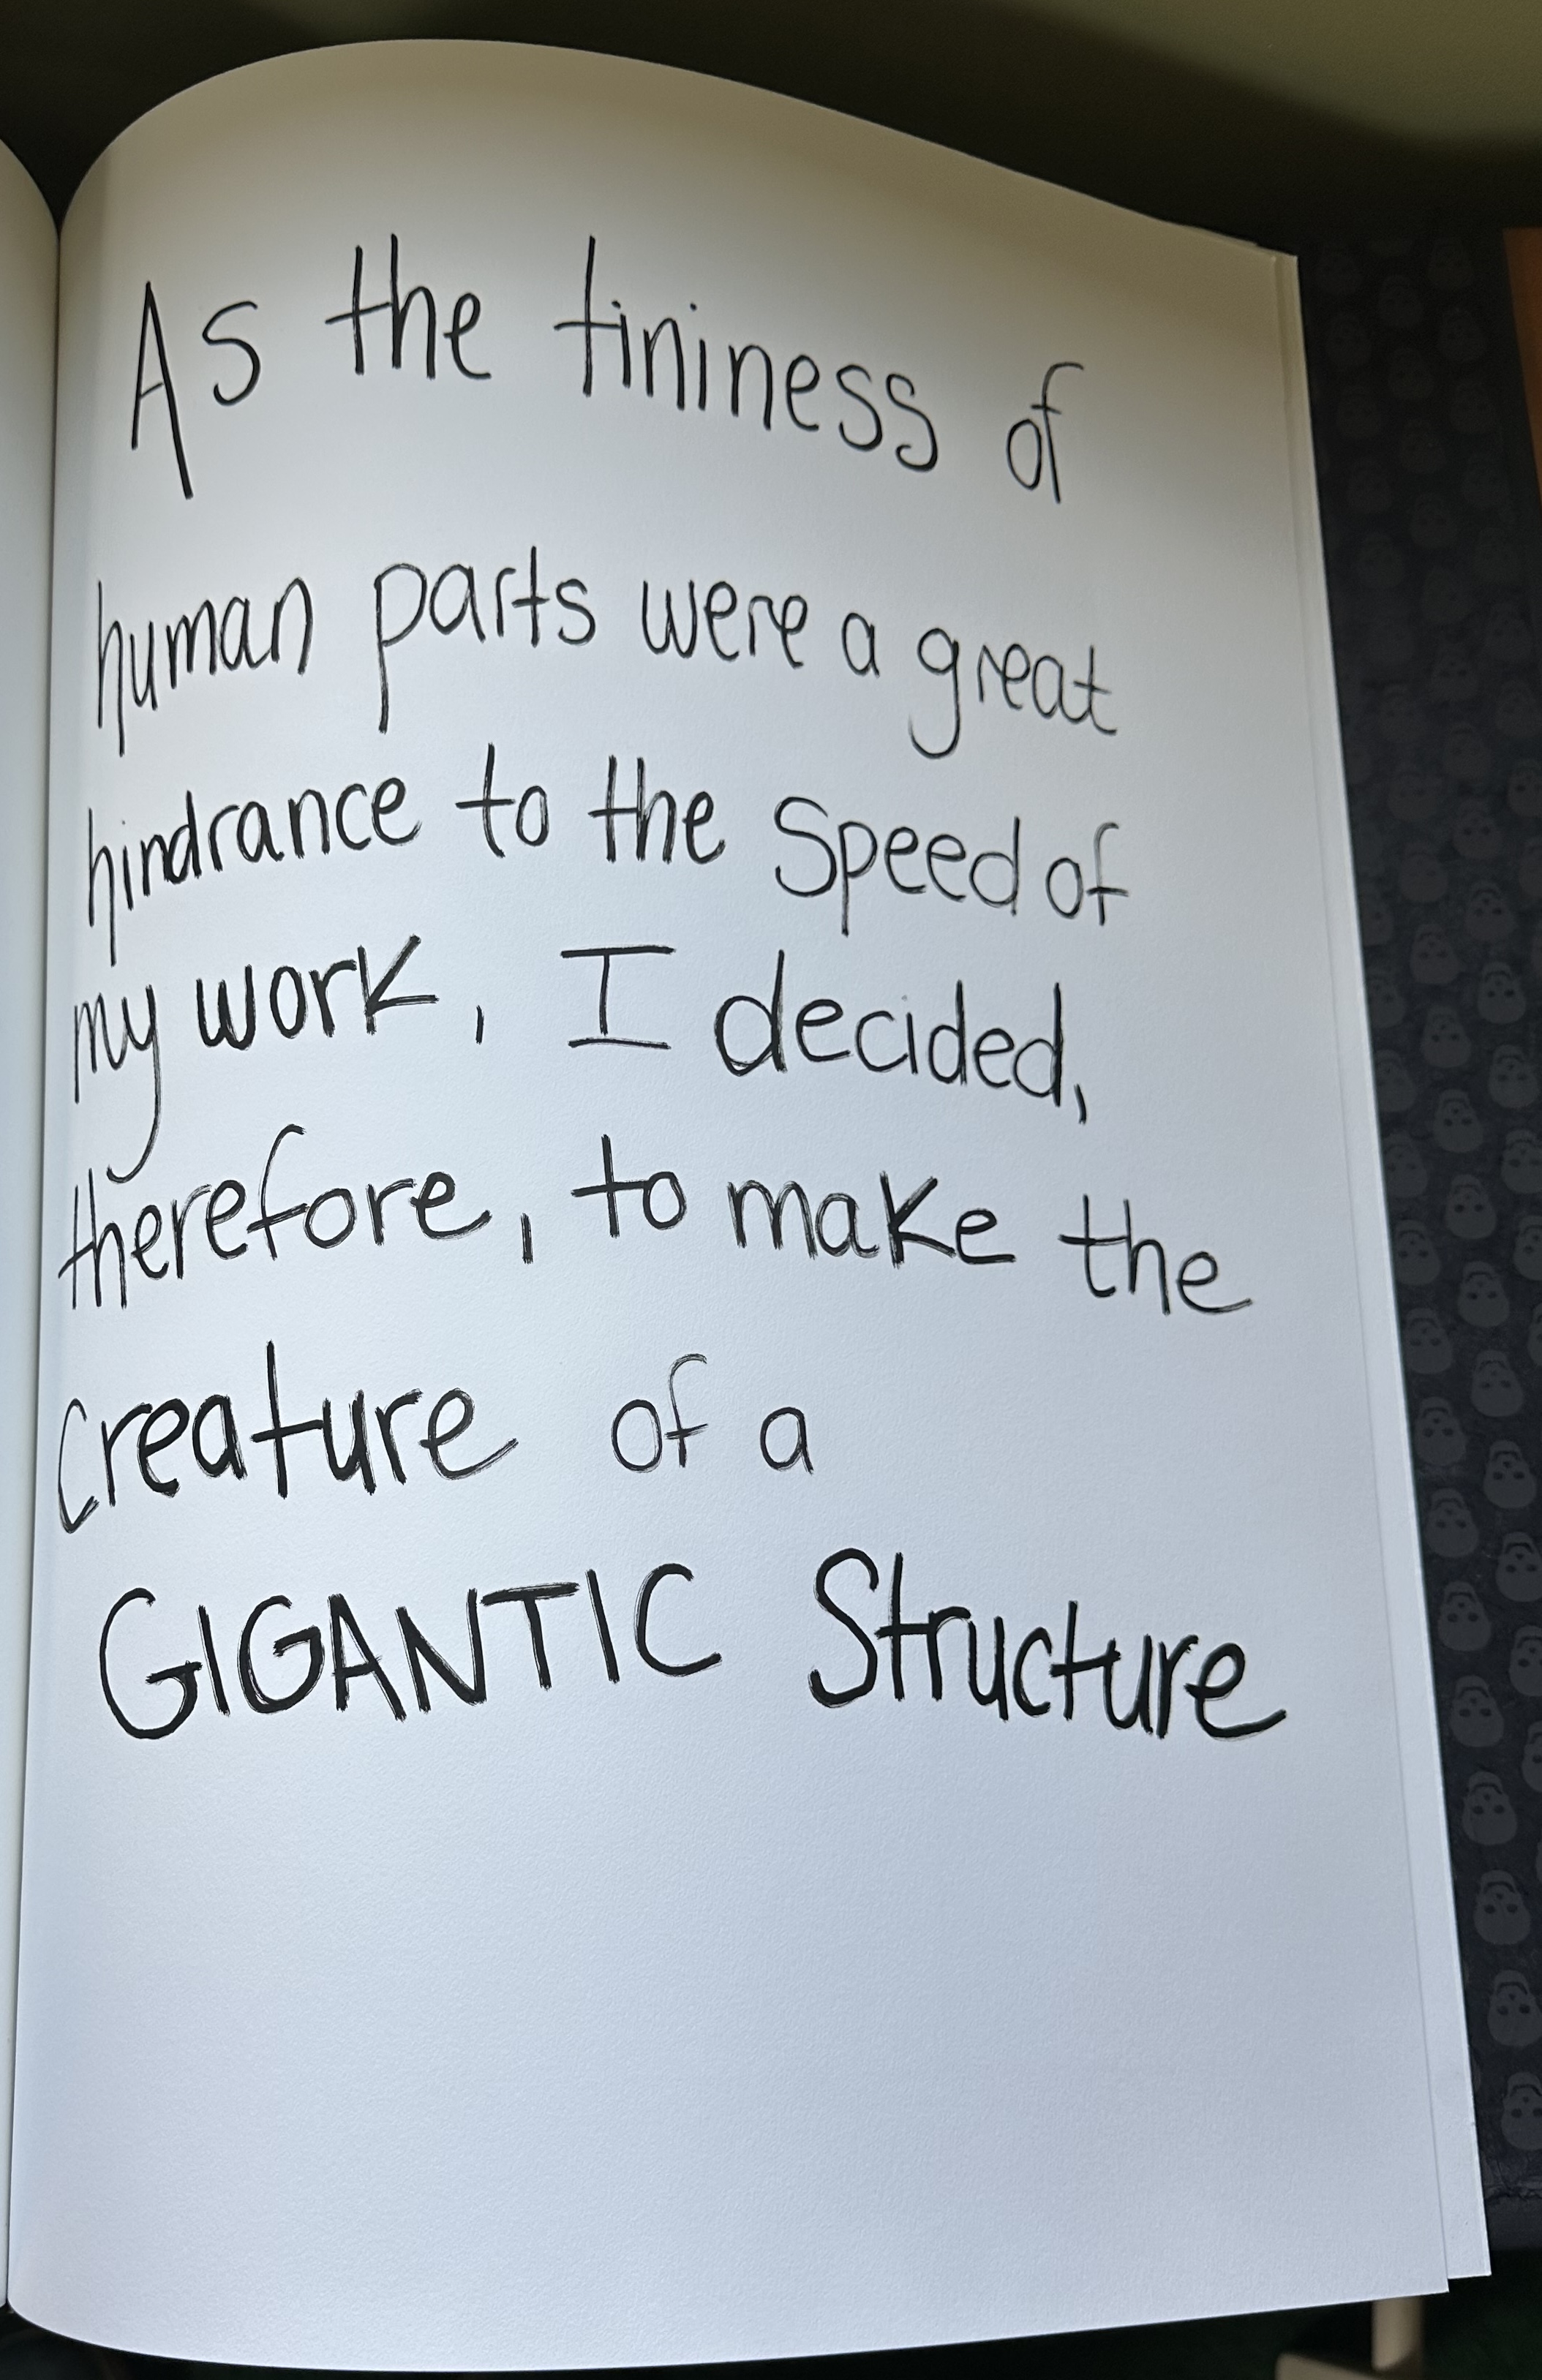 As the tininess of
human parts were a great
hindrance to the Speed of
my work, I decided,
therefore, to make the
creature of a
GIGANTIC Structure